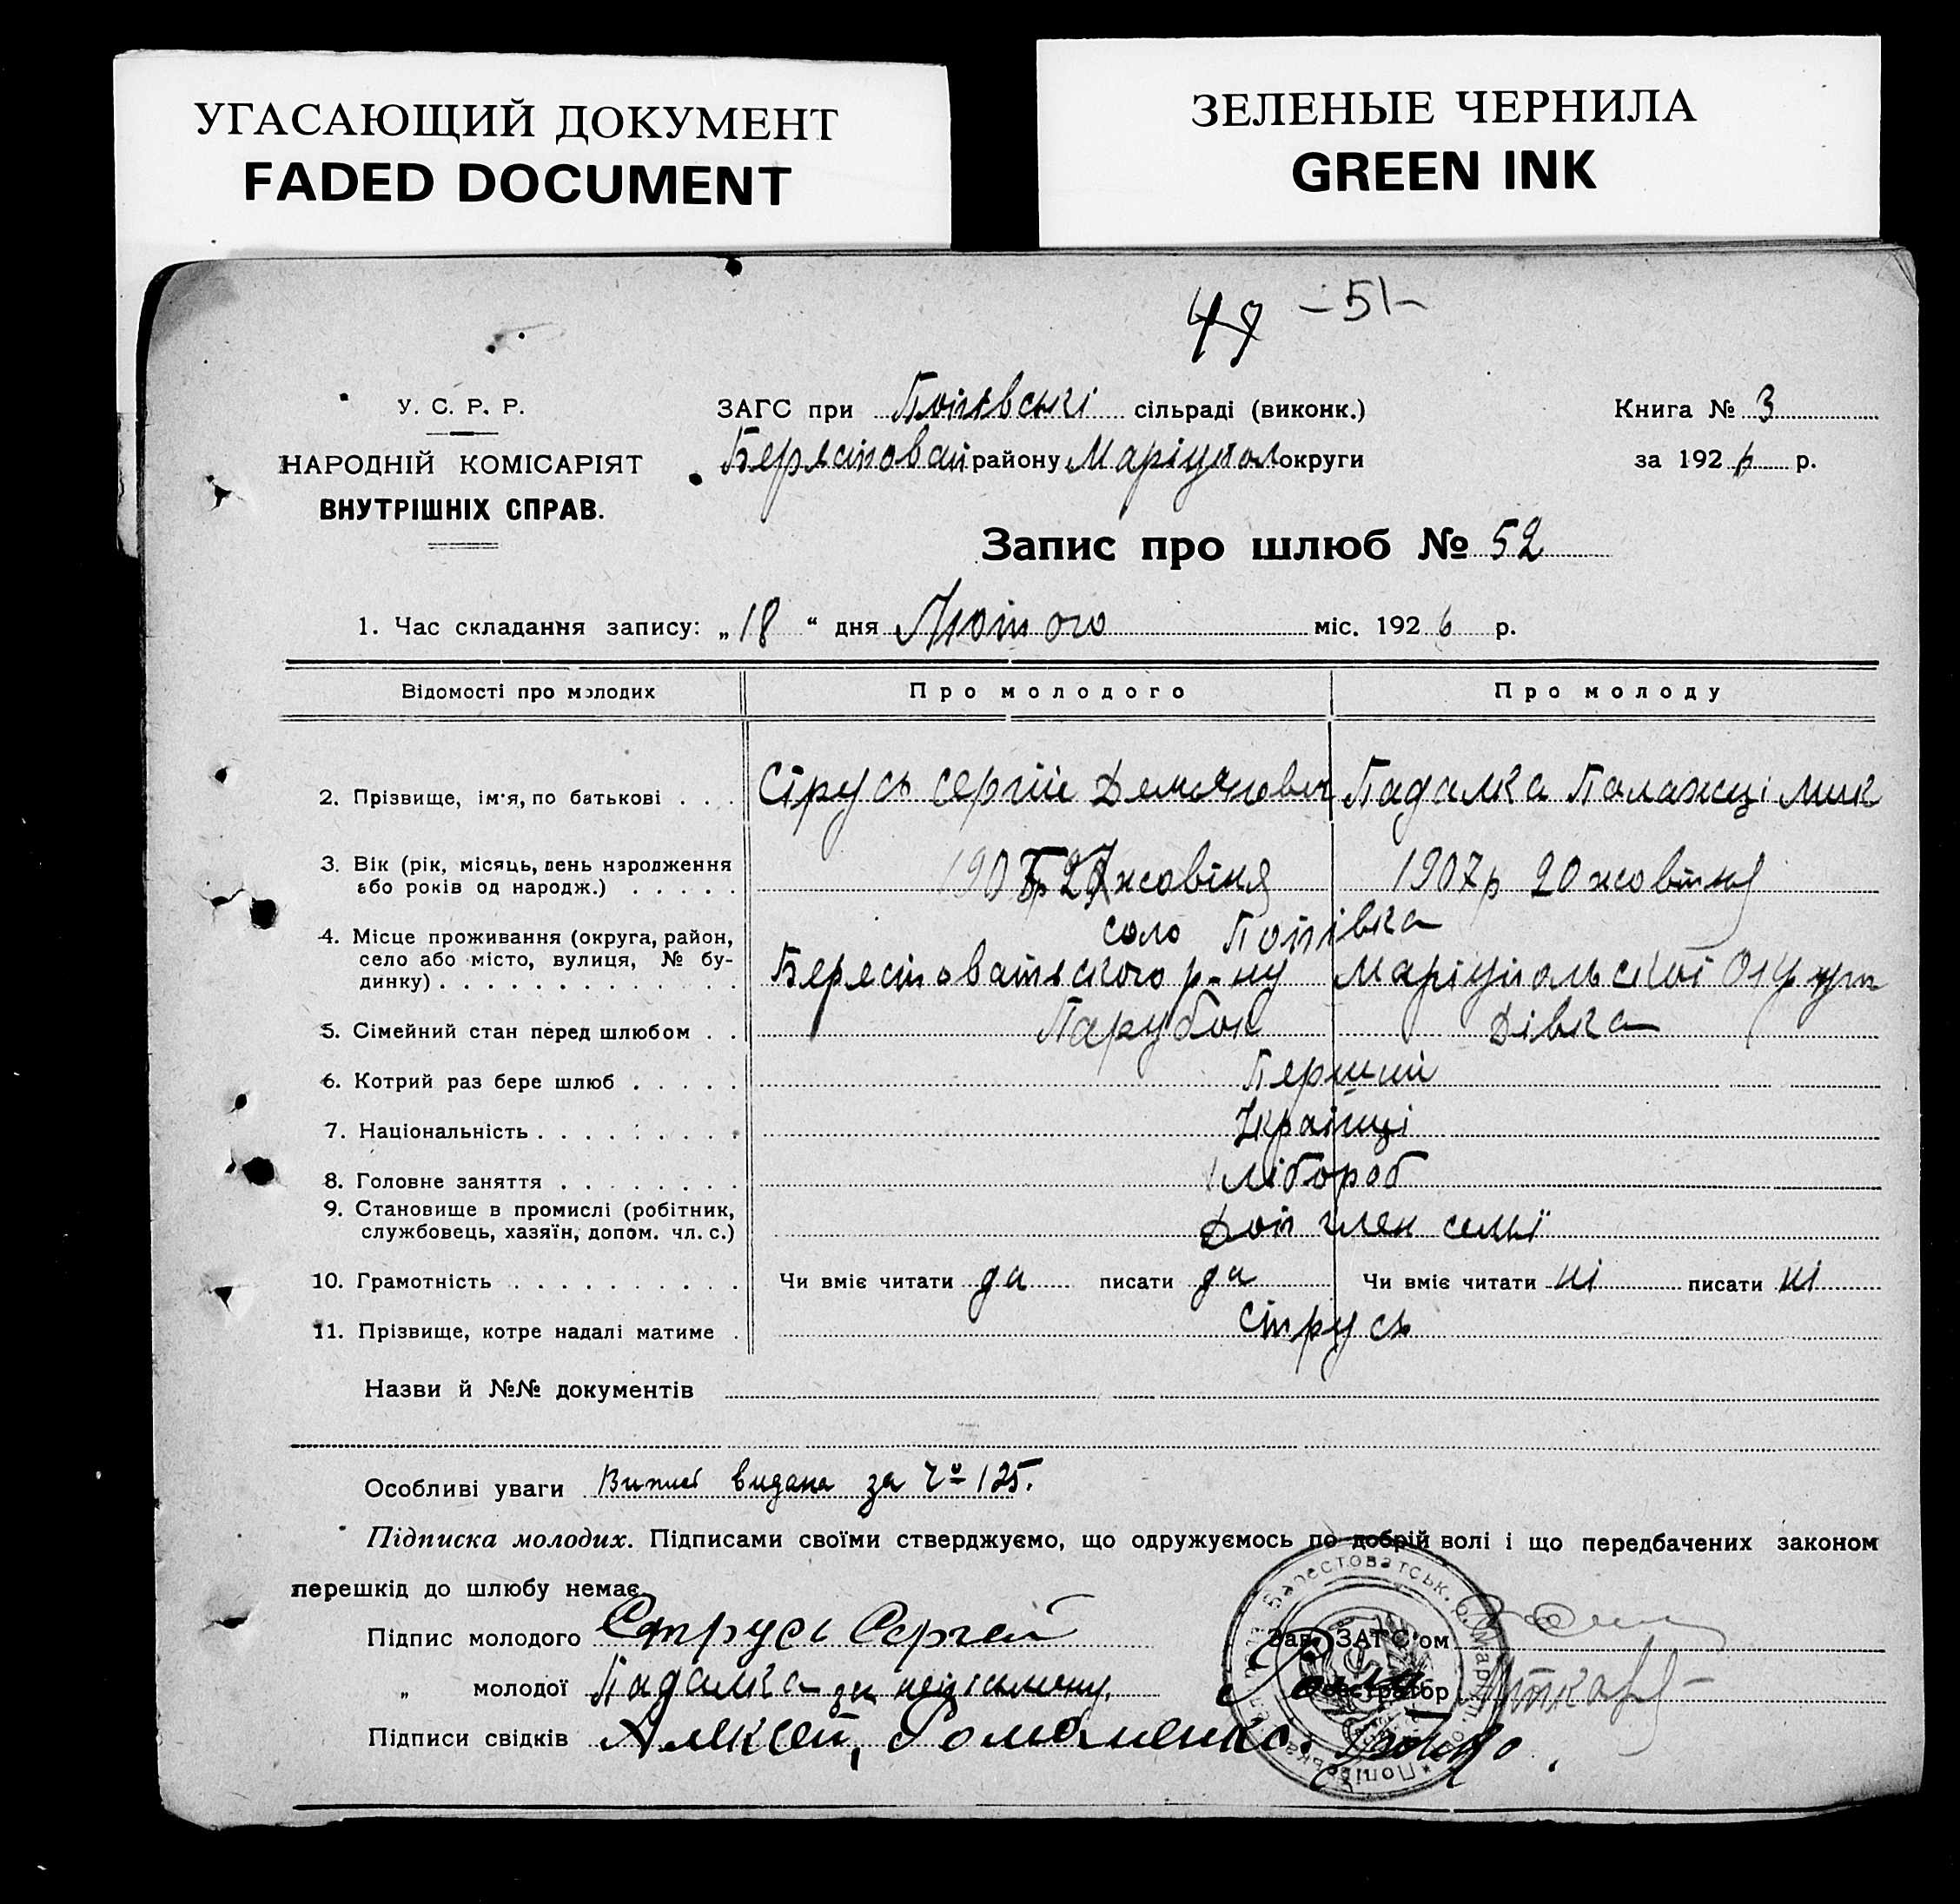 УГАСАЮЩИЙ ДОКУМЕНТ
FADED DOCUMENT
ЗЕЛЕНЫЕ ЧЕРНИЛА
GREEN INK
47 -51-
У. С. Р. Р.
НАРОДНІЙ КОМІСАРІЯТ
ВНУТРІШНІХ СПРАВ.
ЗАГС при Попівські сільраді (виконк.)
Берястоват району Маріупол округи
Книга № 3
за 1926 р.
Запис про шлюб № 52
1. Час складання запису: „18“ дня Лютого міс. 1926 р.
Відомості про молодих Про молодого Про молоду
2. Прізвище, ім'я, по батькові . . . Струсь Сергій Демянович Падалка Палажці Мик
3. Вік (рік, місяць, день народження
або років од народж.) . . . . . жовтня 1907р 20 жовтня
4. Місце проживання (округа, район,
село або місто, вулиця, № бу-
динку) . . . . . . . . . . . . .
село Попівка
Берястоватського р-ну Маріупольскої Округи
5. Сімейний стан перед шлюбом . . Парубок Дівка
6. Котрий раз бере шлюб . . . . . Перший
7. Національність . . . . . . . . . Українці
8. Головне заняття . . . . . . . . Хлібороб
9. Становище в промислі (робітник,
службовець, хазяїн, допом. чл. с.) Доп член семьї
10. Грамотність . . . . . . . . . . Чи вміє читати да писати да Чи вміє читати ні писати ні
11. Прізвище, котре надалі матиме . Струсь
Назви й №№ документів
Особливі уваги видана за 125.
Підписка молодих. Підписами своїми стверджуємо, що одружуємось по добрій волі і що передбачених законом
перешкід до шлюбу немає.
Підпис молодого Струсь Сергей
„ молодої Падалка за
Підписи свідків Алексей, Романенко
Зав. ЗАГС'ом
Реєстратор